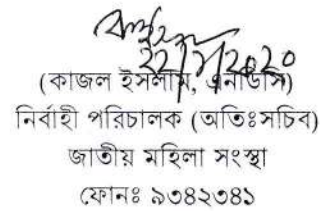 ২২/৭/২০২০
(কাজল ইসলাম, এনডিসি)
নির্বাহী পরিচালক (অতিঃসচিব)
জাতীয় মহিলা সংস্থা
ফোনঃ ৯৩৪২৩৪১